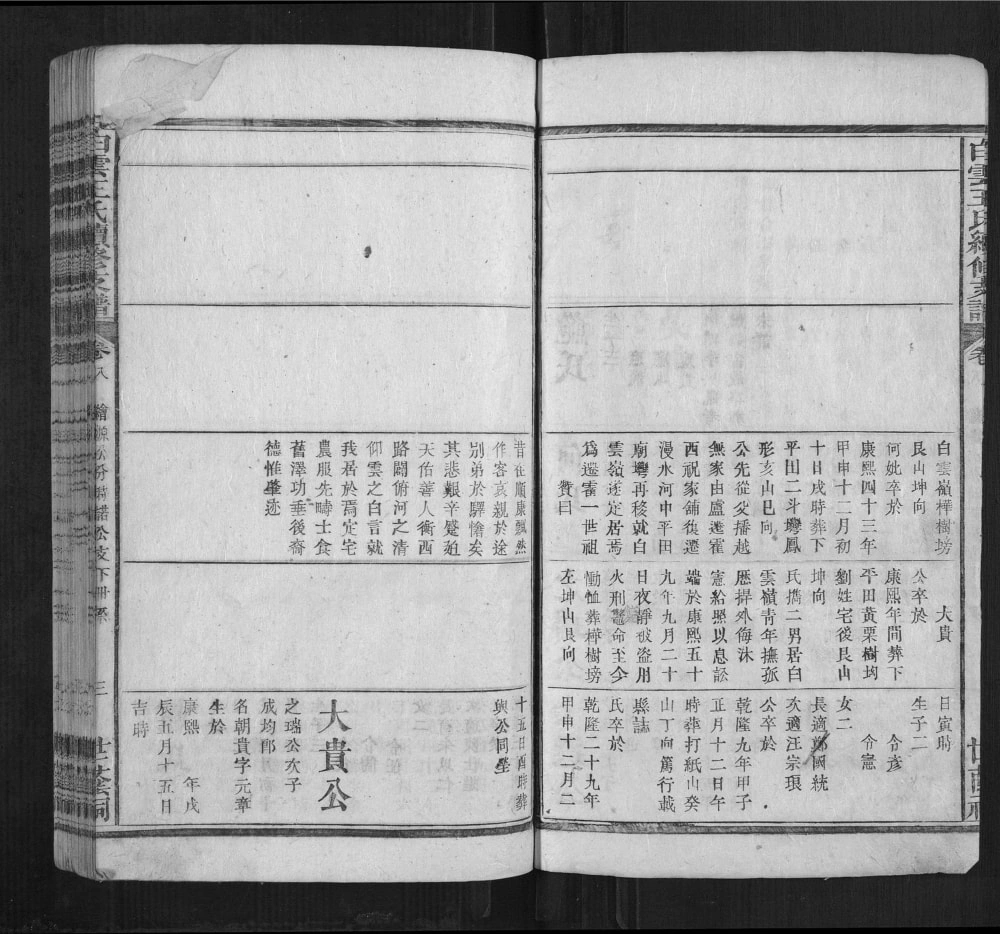 白雲王氏續修支譜
卷
白雲嶺樺樹塝
艮山坤向
何妣卒於
康熙四十三年
甲申十二月初
十日戌時葬下
平田二斗塆鳳
形亥山巳向
公先從父播越
無家由廬遷霍
西祝家鋪復遷
漫水河中平田
廟塆再移就白
雲嶺遂定居焉
爲遷霍一世祖
贊曰
大貴
公卒於
康熙年間葬下
平田黃栗樹均
劉姓宅後艮山
坤向
氏攜二男居白
雲嶺青年撫孤
歷捍外侮沐
憲給照以息訟
端於康熙五十
九年九月二十
日夜靜被盜用
火刑斃命至今
慟恤葬樺樹塝
左坤山艮向
日寅時
生子二
令彥
令憲
女二
長適鄭國統
次適汪宗琅
公卒於
乾隆九年甲子
正月十二日午
時葬打紙山癸
山丁向篤行載
縣誌
氏卒於
乾隆二十九年
甲申十二月二
昔在順康飄然
作客哀親於途
別弟於驛愴矣
其悲艱辛蹙廹
天佑善人衡西
路闢俯河之清
仰雲之白言就
我居於焉定宅
農服先疇士食
舊澤功垂後裔
德惟肇迹
十五日酉時葬
與公同塋
大貴公
之瑞公次子
成均郎
名朝貴字元章
生於
康熙 年戊
辰五月十五日
吉時
白雲王氏續修支譜
卷八
三
世蔭祠